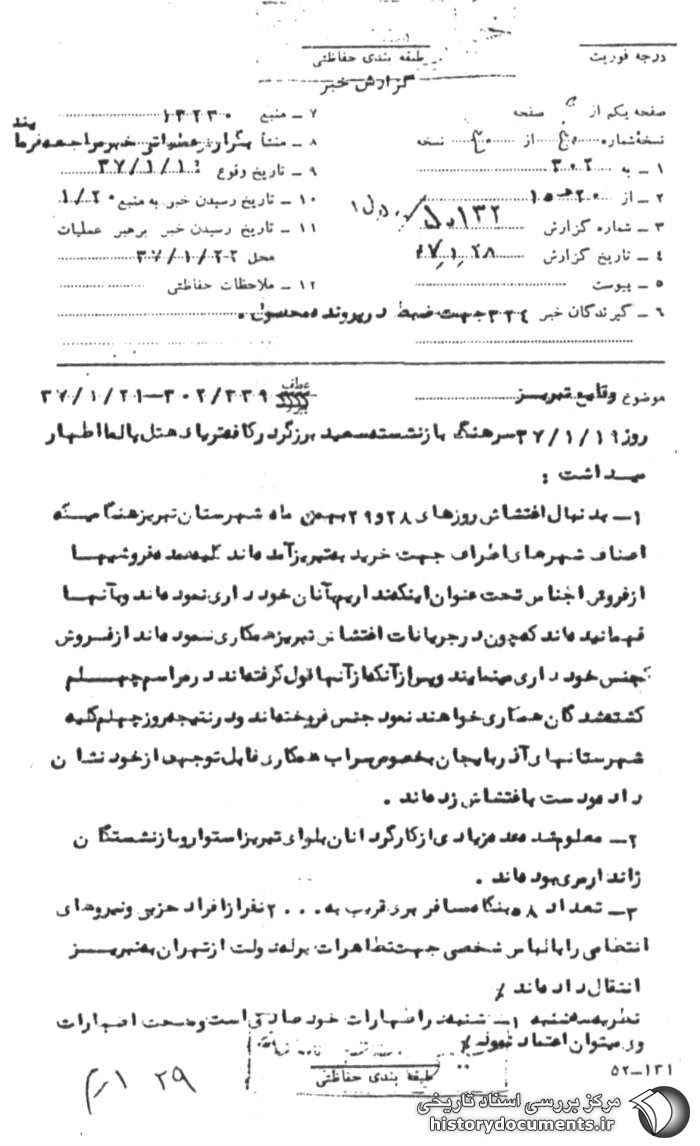 درجه فوریت
طبقه بندی حفاظتی
گزارش خبر
صفحه یکم از صفحه
نسخه شماره از نسخه
۱ ـ به ۳۰۲
۲ ـ از ۲۰ ه ۱۵
۳ ـ شماره گزارش ۱۳۲
۴ ـ تاریخ گزارش ۲۸ر۱ر۳۷
۵ ـ پیوست
۶ ـ گیرندگان خبر ۳۳۴ جهت ضبط در پرونده محصول .
۷ ـ منبع ۱۳۲۳۰
۸ ـ منشأ بگزارش عملیاتی خبر مراجعه فرمایند
۹ ـ تاریخ وقوع ۳۷/۱/۱۹
۱۰ ـ تاریخ رسیدن خبر به منبع ۱/۲۰
۱۱ ـ تاریخ رسیدن خبر برهبر عملیات
محل ۳۷/۱/۲۲
۱۲ ـ ملاحظات حفاظتی
موضوع وقایع تبریز
عطف ۳۰۲/۳۳۹ـ۳۷/۱/۲۱
روز ۳۷/۱/۱۹ سرهنگ بازنشسته سعید برزگر در کافتریای هتل پالما اظهار
میداشت :
۱ـ بدنبال اغتشاش روزهای ۲۸ و ۲۹ بهمن ماه شهرستان تبریز هنگامیکه
اصناف شهرهای اطراف جهت خرید به تبریز آمده‌اند کلیه عمده فروشیها
از فروش اجناس تحت عنوان اینکه نداریم به آنان خودداری نموده‌اند و به آنها
فهمانیده‌اند که چون در جریانات اغتشاش تبریز همکاری ننموده‌اند از فروش
جنس خودداری مینمایند و پس از آنکه از آنها قول گرفته‌اند در مراسم چهلم
کشته‌شدگان همکاری خواهند نمود جنس فروخته‌اند و در نتیجه روز چهلم کلیه
شهرستانهای آذربایجان بخصوص سراب همکاری قابل توجهی از خود نشان
داده و دست به اغتشاش زده‌اند .
۲ـ معلوم شده عده زیادی از کارگردانان بلوای تبریز استوار و بازنشستگان
ژاندارمری بوده‌اند .
۳ـ تعداد ۵۸ بنگاه مسافربری قریب به ۲۰۰۰ نفر از افراد حزبی و نیروهای
انتظامی را با لباس شخصی جهت تظاهرات برله دولت از تهران به تبریز
انتقال داده‌اند
نظریه سه‌شنبه ۱ـ شنبه در اظهارات خود صادق است و صحت اظهارات
وی میتوان اعتماد نمود
طبقه بندی حفاظتی
۱۳۱ـ۵۲
۲۹ ر۱
مرکز بررسی اسناد تاریخی
historydocuments.ir